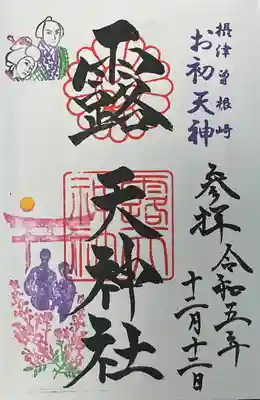 摂津曽根崎
お初天神
参拝 令和五年
十二月十二日
露
天神社